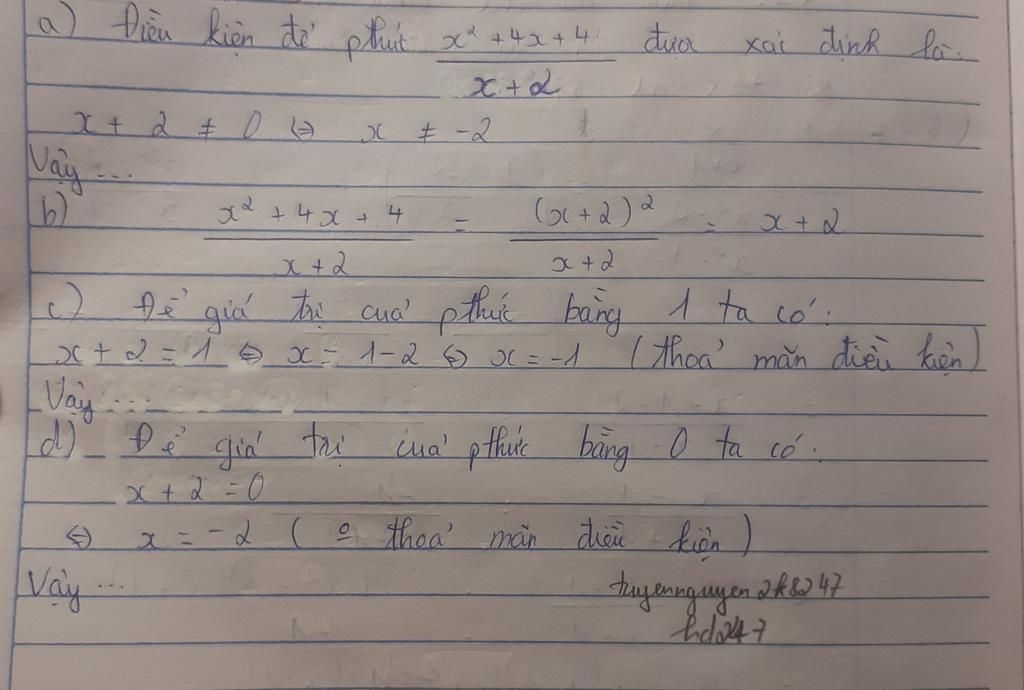 a) Điều kiện để phthức (x² + 4x + 4)/(x + 2) được xác định là:
x + 2 ≠ 0 ⇔ x ≠ -2
Vậy ...
b) (x² + 4x + 4)/(x + 2) = (x + 2)²/(x + 2) = x + 2
c) Để giá trị của pthức bằng 1 ta có:
x + 2 = 1 ⇔ x = 1 - 2 ⇔ x = -1 (thoả mãn điều kiện)
Vậy ...
d) Để giá trị của pthức bằng 0 ta có:
x + 2 = 0
⇔ x = -2 (º thoả mãn điều kiện)
Vậy ...
tuyennguyen2k8247
hd247